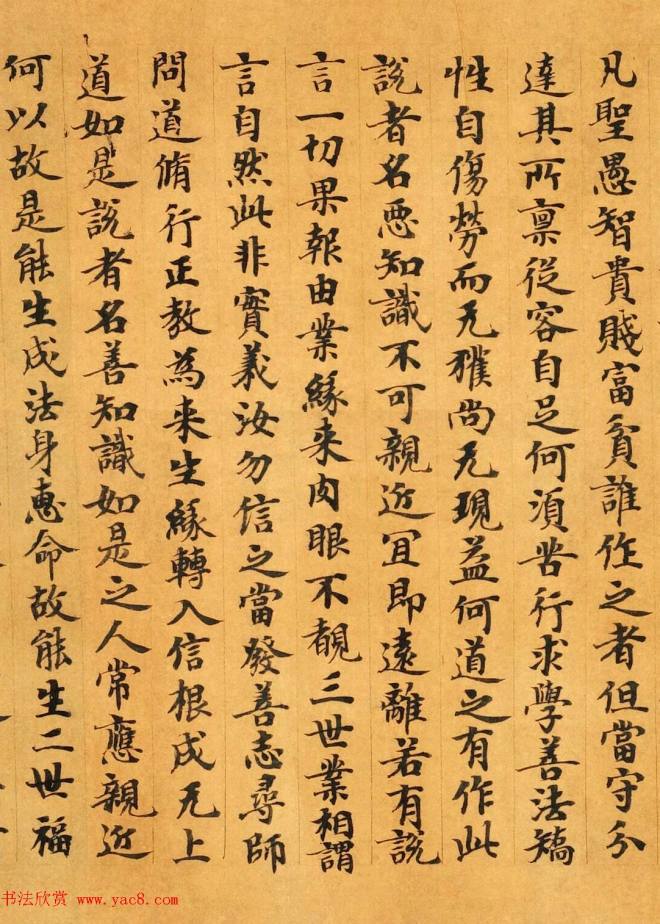 凡聖愚智貴賤富貧誰作之者但當守分
達其所稟從容自足何須苦行求學善法矯
性自傷勞而无獲尚无現益何道之有作此
說者名惡知識不可親近宜即遠離若有說
言一切果報由業緣来肉眼不覩三世業相謂
言自然此非實義汝勿信之當發善志尋師
問道脩行正教為来生緣轉入信根成无上
道如是說者名善知識如是之人常應親近
何以故是能生成法身惠命故能生二世福
书法欣赏 www.yac8.com